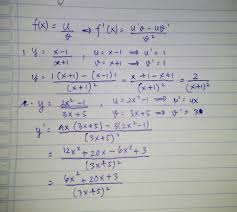 f(x) = u/v ⇒ f'(x) = (u'v - uv')/v²
1. y = (x-1)/(x+1), u = x-1 ⇒ u' = 1
v = x+1 ⇒ v' = 1
y = (1(x+1) - (x-1)1)/(x+1)² = (x+1-x+1)/(x+1)² = 2/(x+1)²
2. y = (2x²-1)/(3x+5), u = 2x²-1 ⇒ u' = 4x
v = 3x+5 ⇒ v' = 3
y' = (4x(3x+5) - 3(2x²-1))/(3x+5)²
= (12x² + 20x - 6x² + 3)/(3x+5)²
= (6x² + 20x + 3)/(3x+5)²